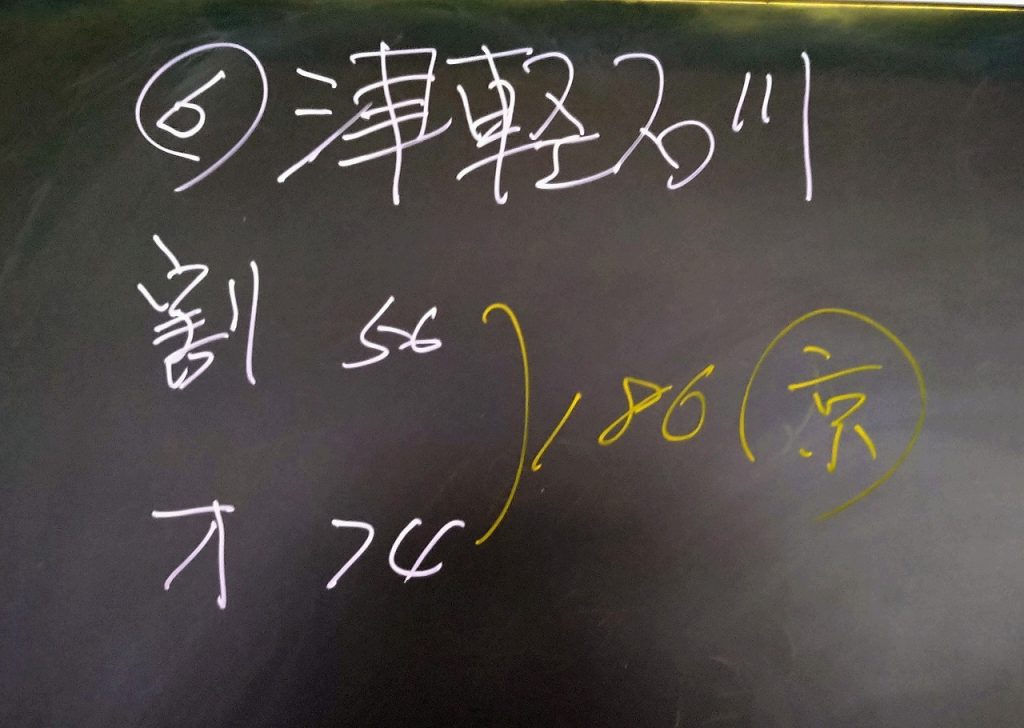 ⑥ 津軽石川
割 56
186 京
才 74